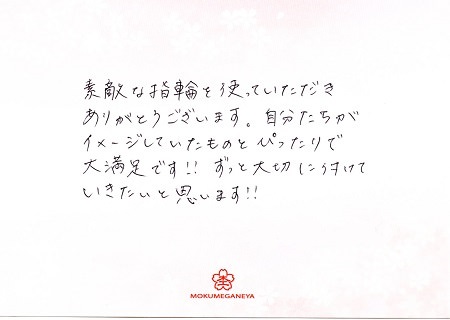 素敵な指輪を使っていただき
ありがとうございます。自分たちが
イメージしていたものとぴったりで
大満足です!! ずっと大切に付けて
いきたいと思います!!
MOKUMEGANEYA